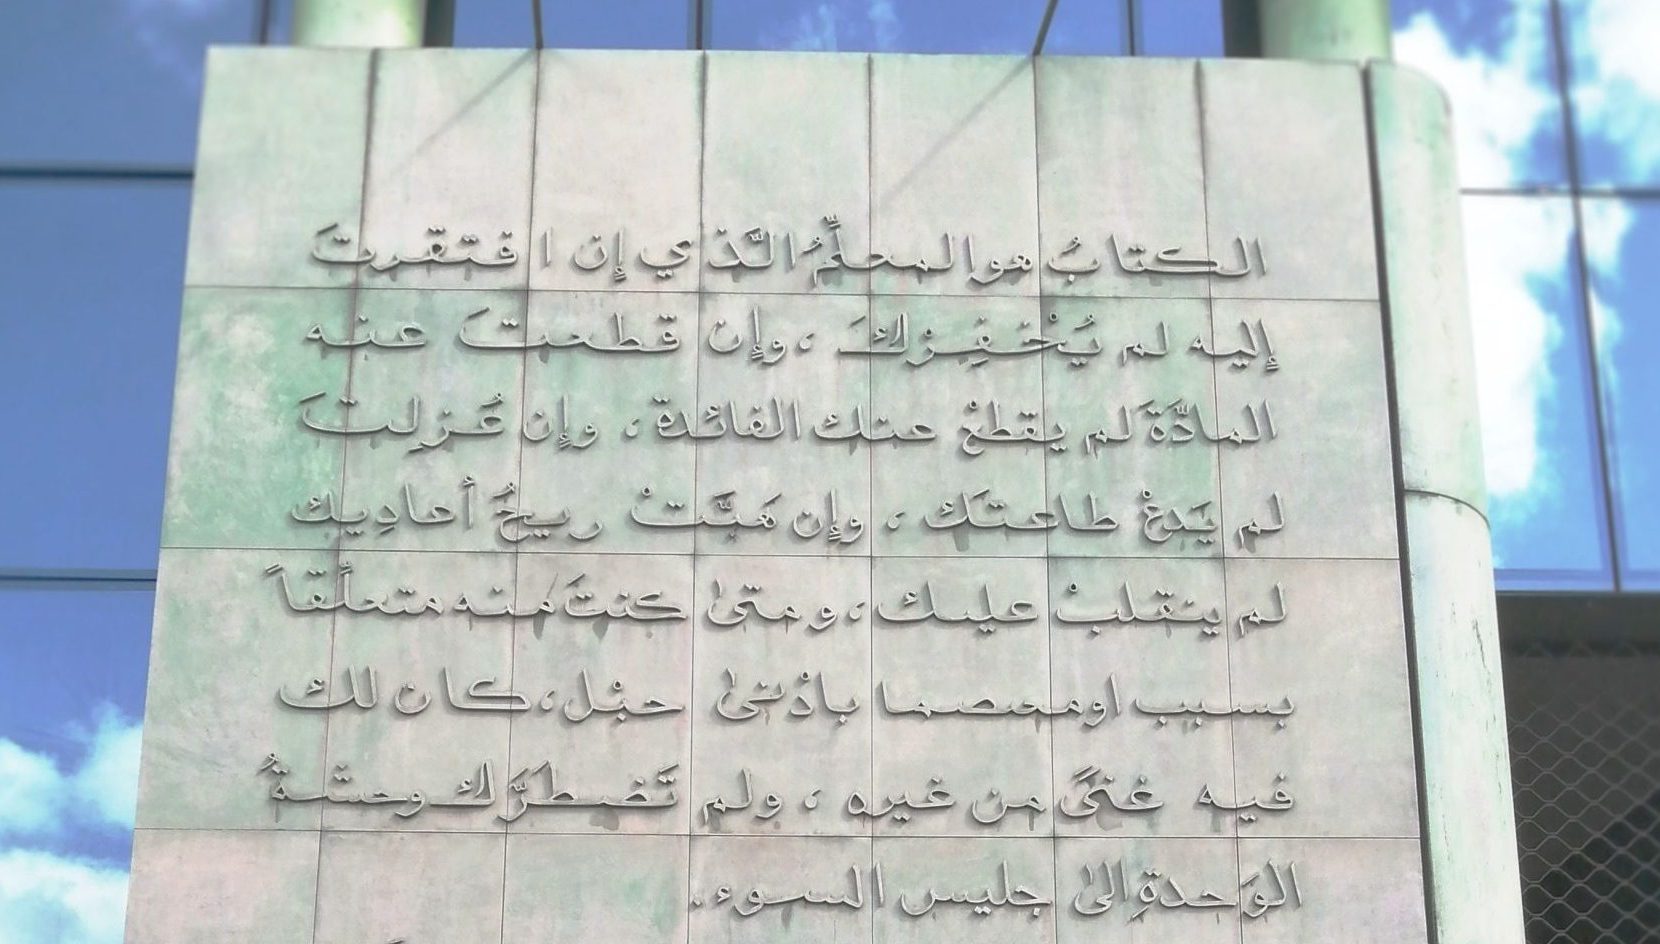 الكتابُ هو المعلِّمُ الَّذي إن افتقرتَ
إليه لم يُخْفِرْكَ، وإن قطعتَ عنه
المادَّةَ لم يقطعْ عنك الفائدة، وإن عُزِلتَ
لم يَدعْ طاعتَك، وإن هَبَّتْ ريحُ أعادِيك
لم ينقلبْ عليك، ومتىٰ كنتَ منه متعلِّقاً
بسبب او معصما بأدْنىٰ حبْل، كان لك
فيه غنىً من غيره، ولم تَضطرَّك وحشةُ
الوَحدةِ الىٰ جليس السوء.